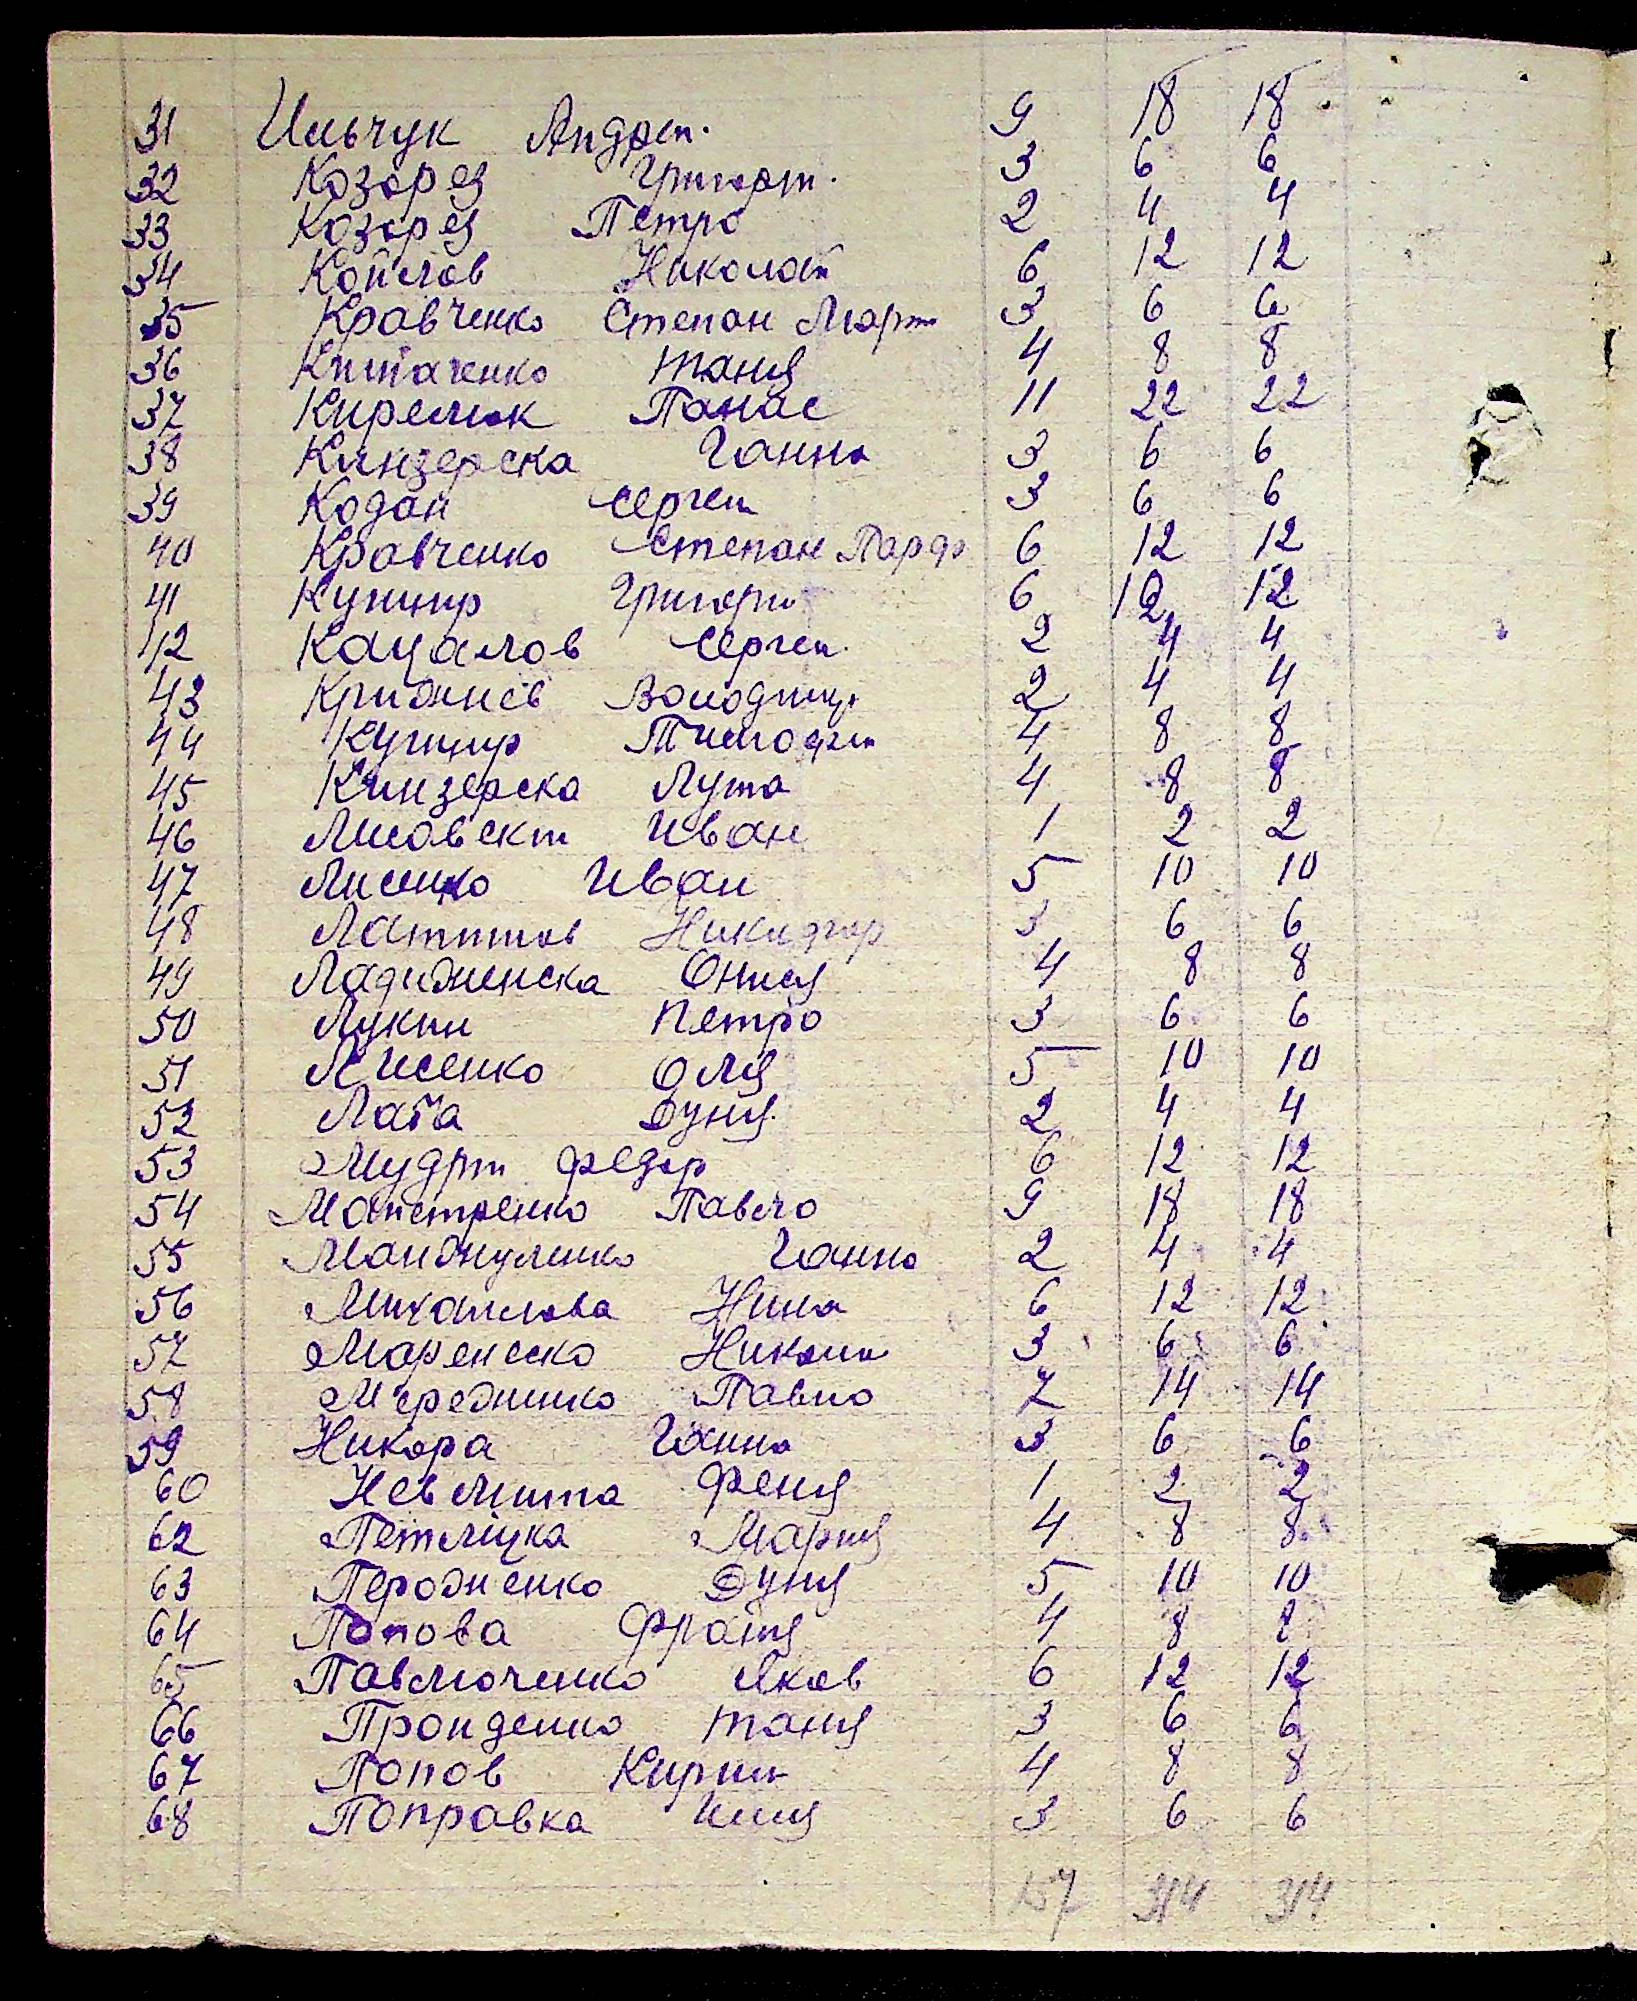 31 Ильчук Андрей. 9 18 18
32 Козорез Григорт. 3 6 6
33 Козорез Петро 2 4 4
34 Коплов Николай 6 12 12
35 Кравченко Степан Март 3 6 6
36 Таня 4 8 8
37 Кирелюк Панас 11 22 22
38 Кинзерска Ганна 3 6 6
39 Кодан Сергеи 3 6 6
40 Кравченко Степан Парф 6 12 12
41 Кушнир Григори 6 12 12
42 Кацалов Сергеи. 2 4 4
43 Крижнев Володимир 2 4 4
44 Кушнир Тимофеи 4 8 8
45 Кинзерска Лута 4 8 8
46 Лисовски Иван 1 2 2
47 Лисенко Иван 5 10 10
48 Никифор 3 6 6
49 Ладиженска Онися 4 8 8
50 Лукин Петро 3 6 6
51 Лисенко Оля 5 10 10
52 Лата Дуня. 2 4 4
53 Мудри Федор 6 12 12
54 Маистренко Павло 9 18 18
55 Манжуленко Ганна 2 4 4
56 Михаилова Нина 6 12 12
57 Маренеско Никола 3 6 6
58 Мережинко Павло 7 14 14
59 Никора Ганна 3 6 6
60 Невмита Феня 1 2 2
62 Петлицка Мария 4 8 8
63 Пероженко Дуня 5 10 10
64 Попова Фрося 4 8 8
65 Павлюченко Яков 6 12 12
66 Проиденко Таня 3 6 6
67 Попов Кирил 4 8 8
68 Поправка 3 6 6
157 314 314